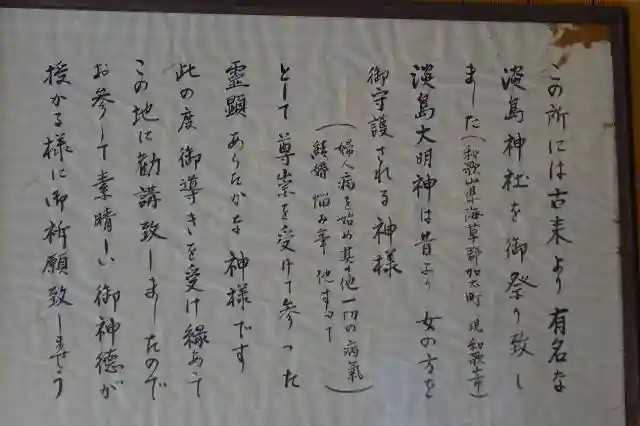 この所には古来より有名な
淡島神社を御祭り致し
ました(和歌山県海草郡加太町 現和歌山市)
淡島大明神は昔より 女の方を
御守護される神様
(婦人病を始め其の他一切の病氣
結婚 悩み事 他すべて)
として尊崇を受けて参った
霊顕あらたかな神様です
此の度御導きを受け縁あって
この地に勧講致しましたので
お参りして素晴しい御神徳が
授かる様に御祈願致しましょう